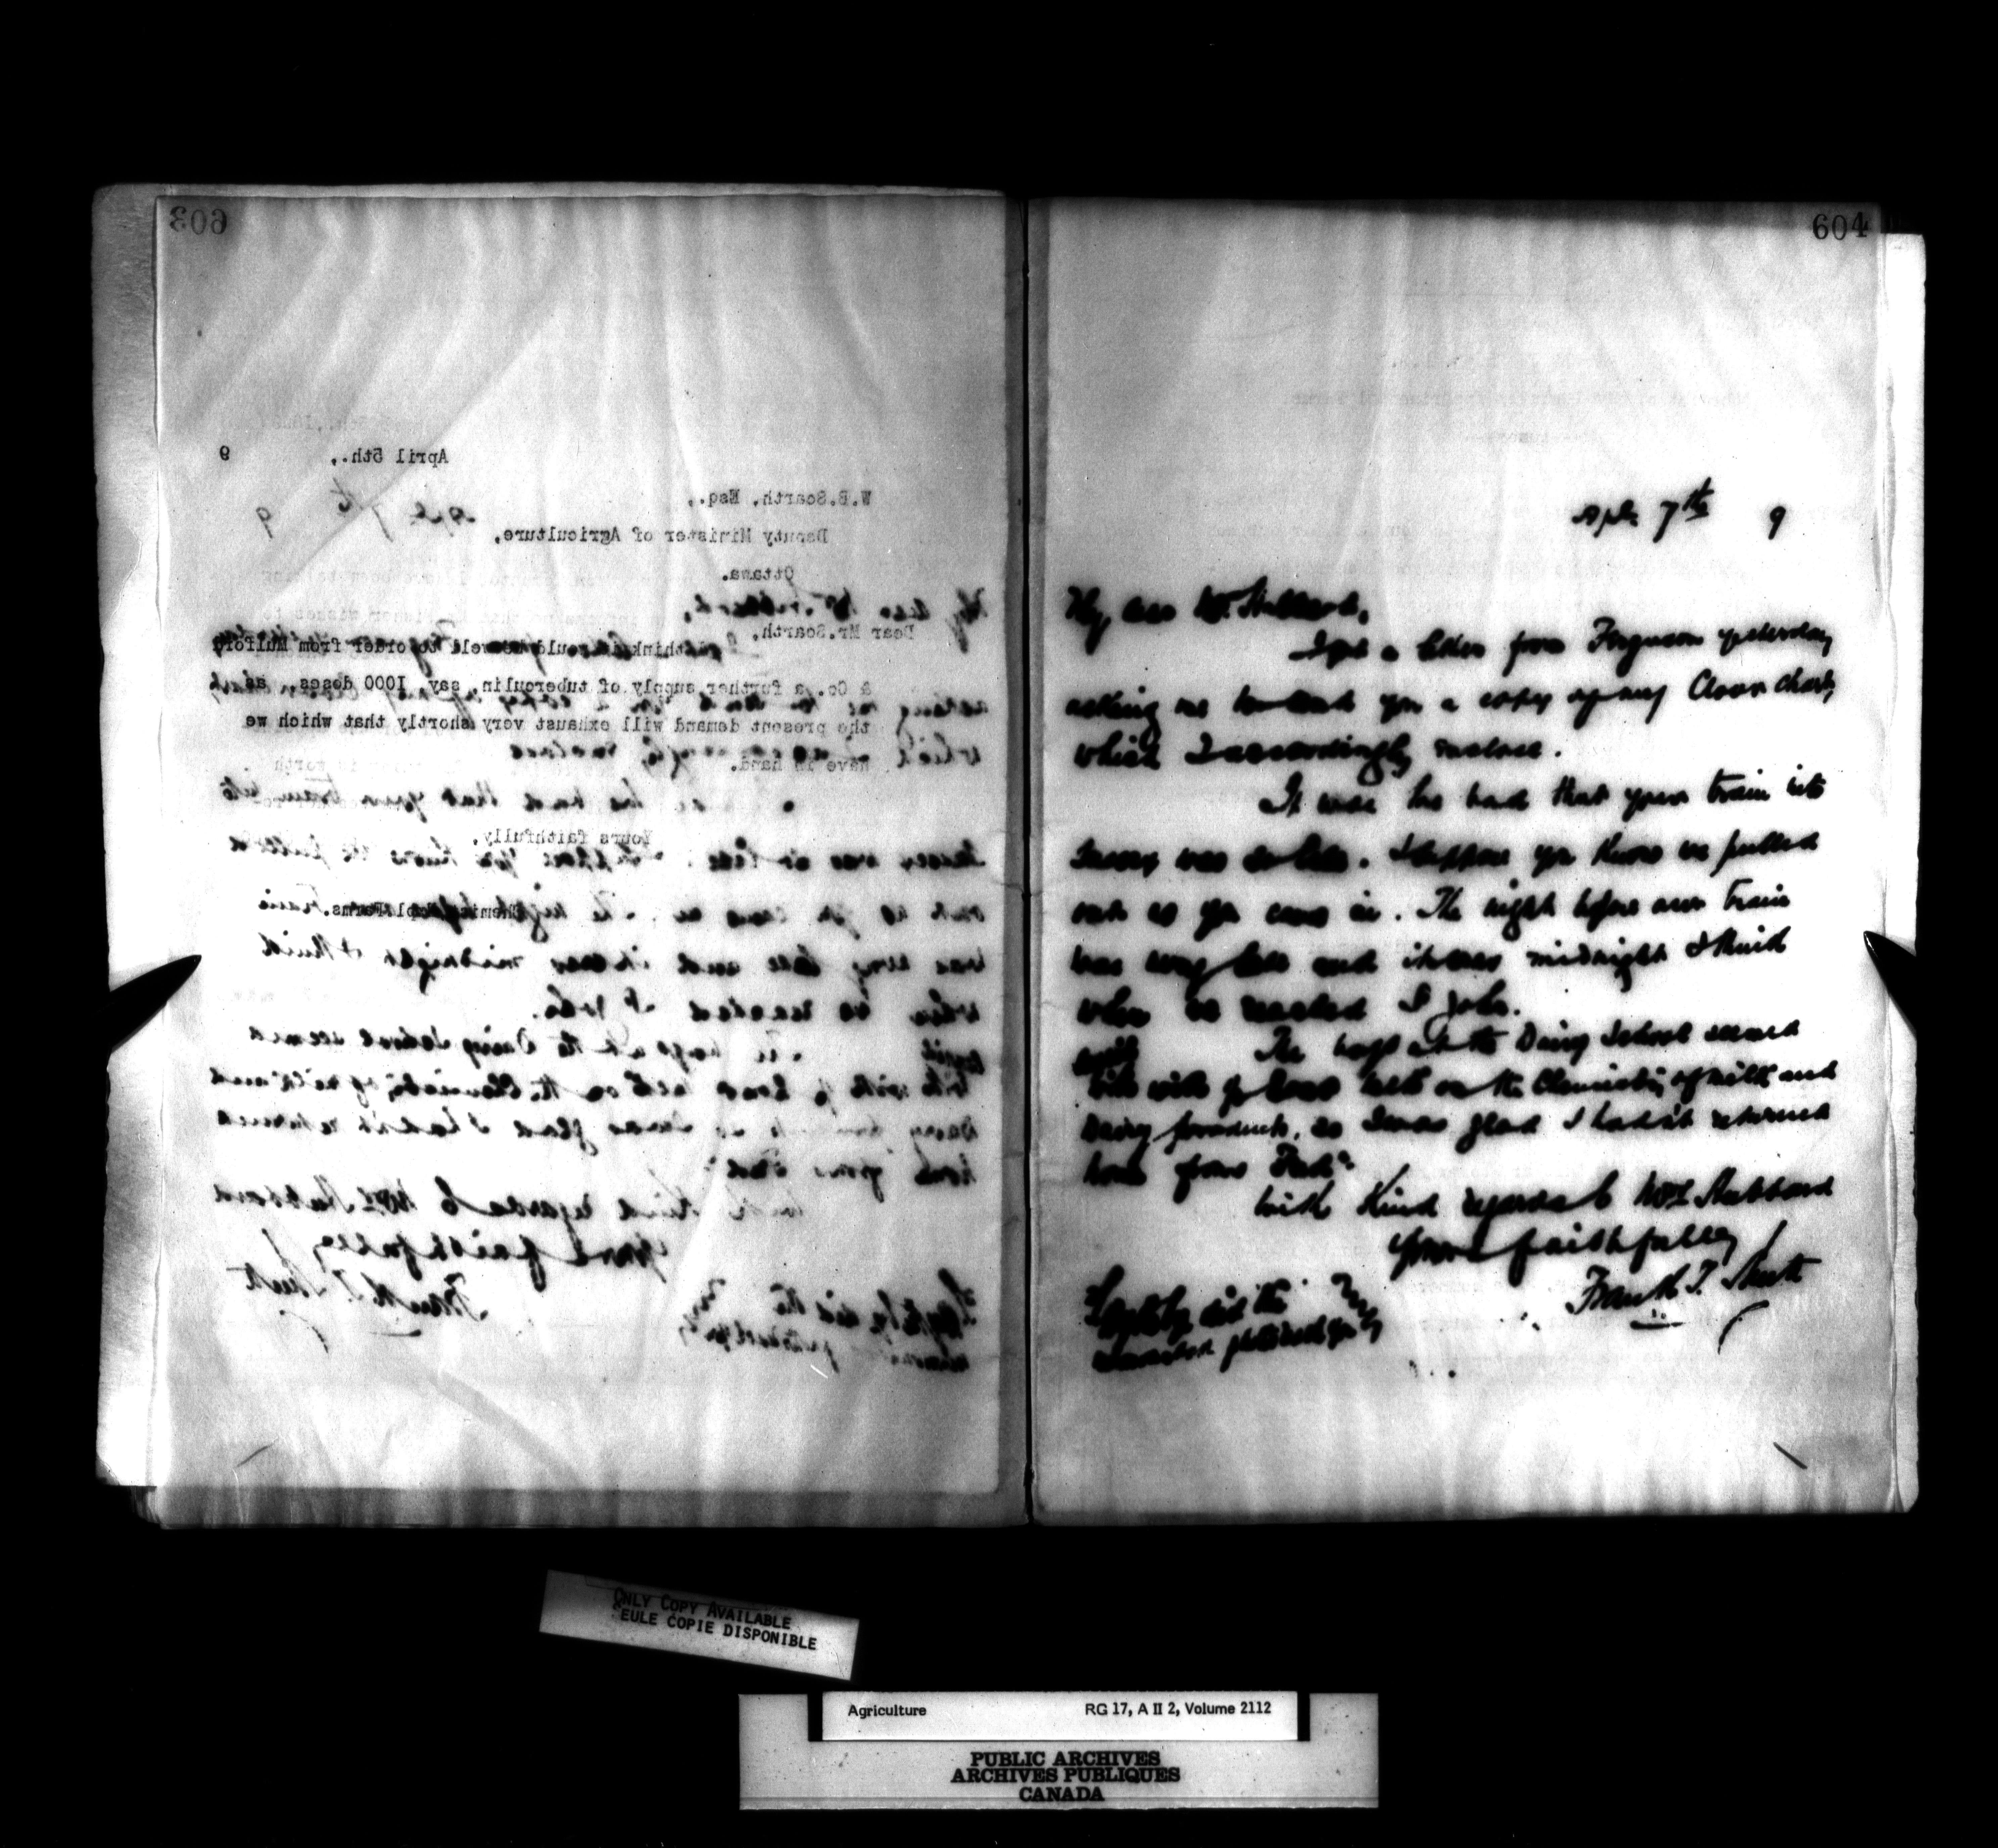 603
April 5th., 9
W.B.Scarth, Esq.,
Deputy Minister of Agriculture,
Ottawa.
Dear Mr.Scarth,
I think it would be well to order from Mulford
& Co. a further supply of tuberculin, say, 1000 doses, as
the present demand will exhaust very shortly that which we
have in hand.
Yours faithfully,
Chemist, Expl. Farms.
604
Apl. 7th 9
My dear Mr. Hubbard,
I got a letter from Ferguson yesterday
asking me to send you a copy of my Clover chart,
which I accordingly enclose.
It was too bad that your train into
Sussex was so late. I suppose you know we pulled
out as you came in. The night before our train
was very late and it was midnight I think
when we reached St John.
The boys at the Dairy School seemed
quite
with my talk on the Chemistry of milk and
Dairy products, so I was glad I hadn't returned
home from Fred'n
With kind regards to Mrs Hubbard
Yours faithfully
Frank T. Shutt
ONLY COPY AVAILABLE
SEULE COPIE DISPONIBLE
Agriculture RG 17, A II 2, Volume 2112
PUBLIC ARCHIVES
ARCHIVES PUBLIQUES
CANADA